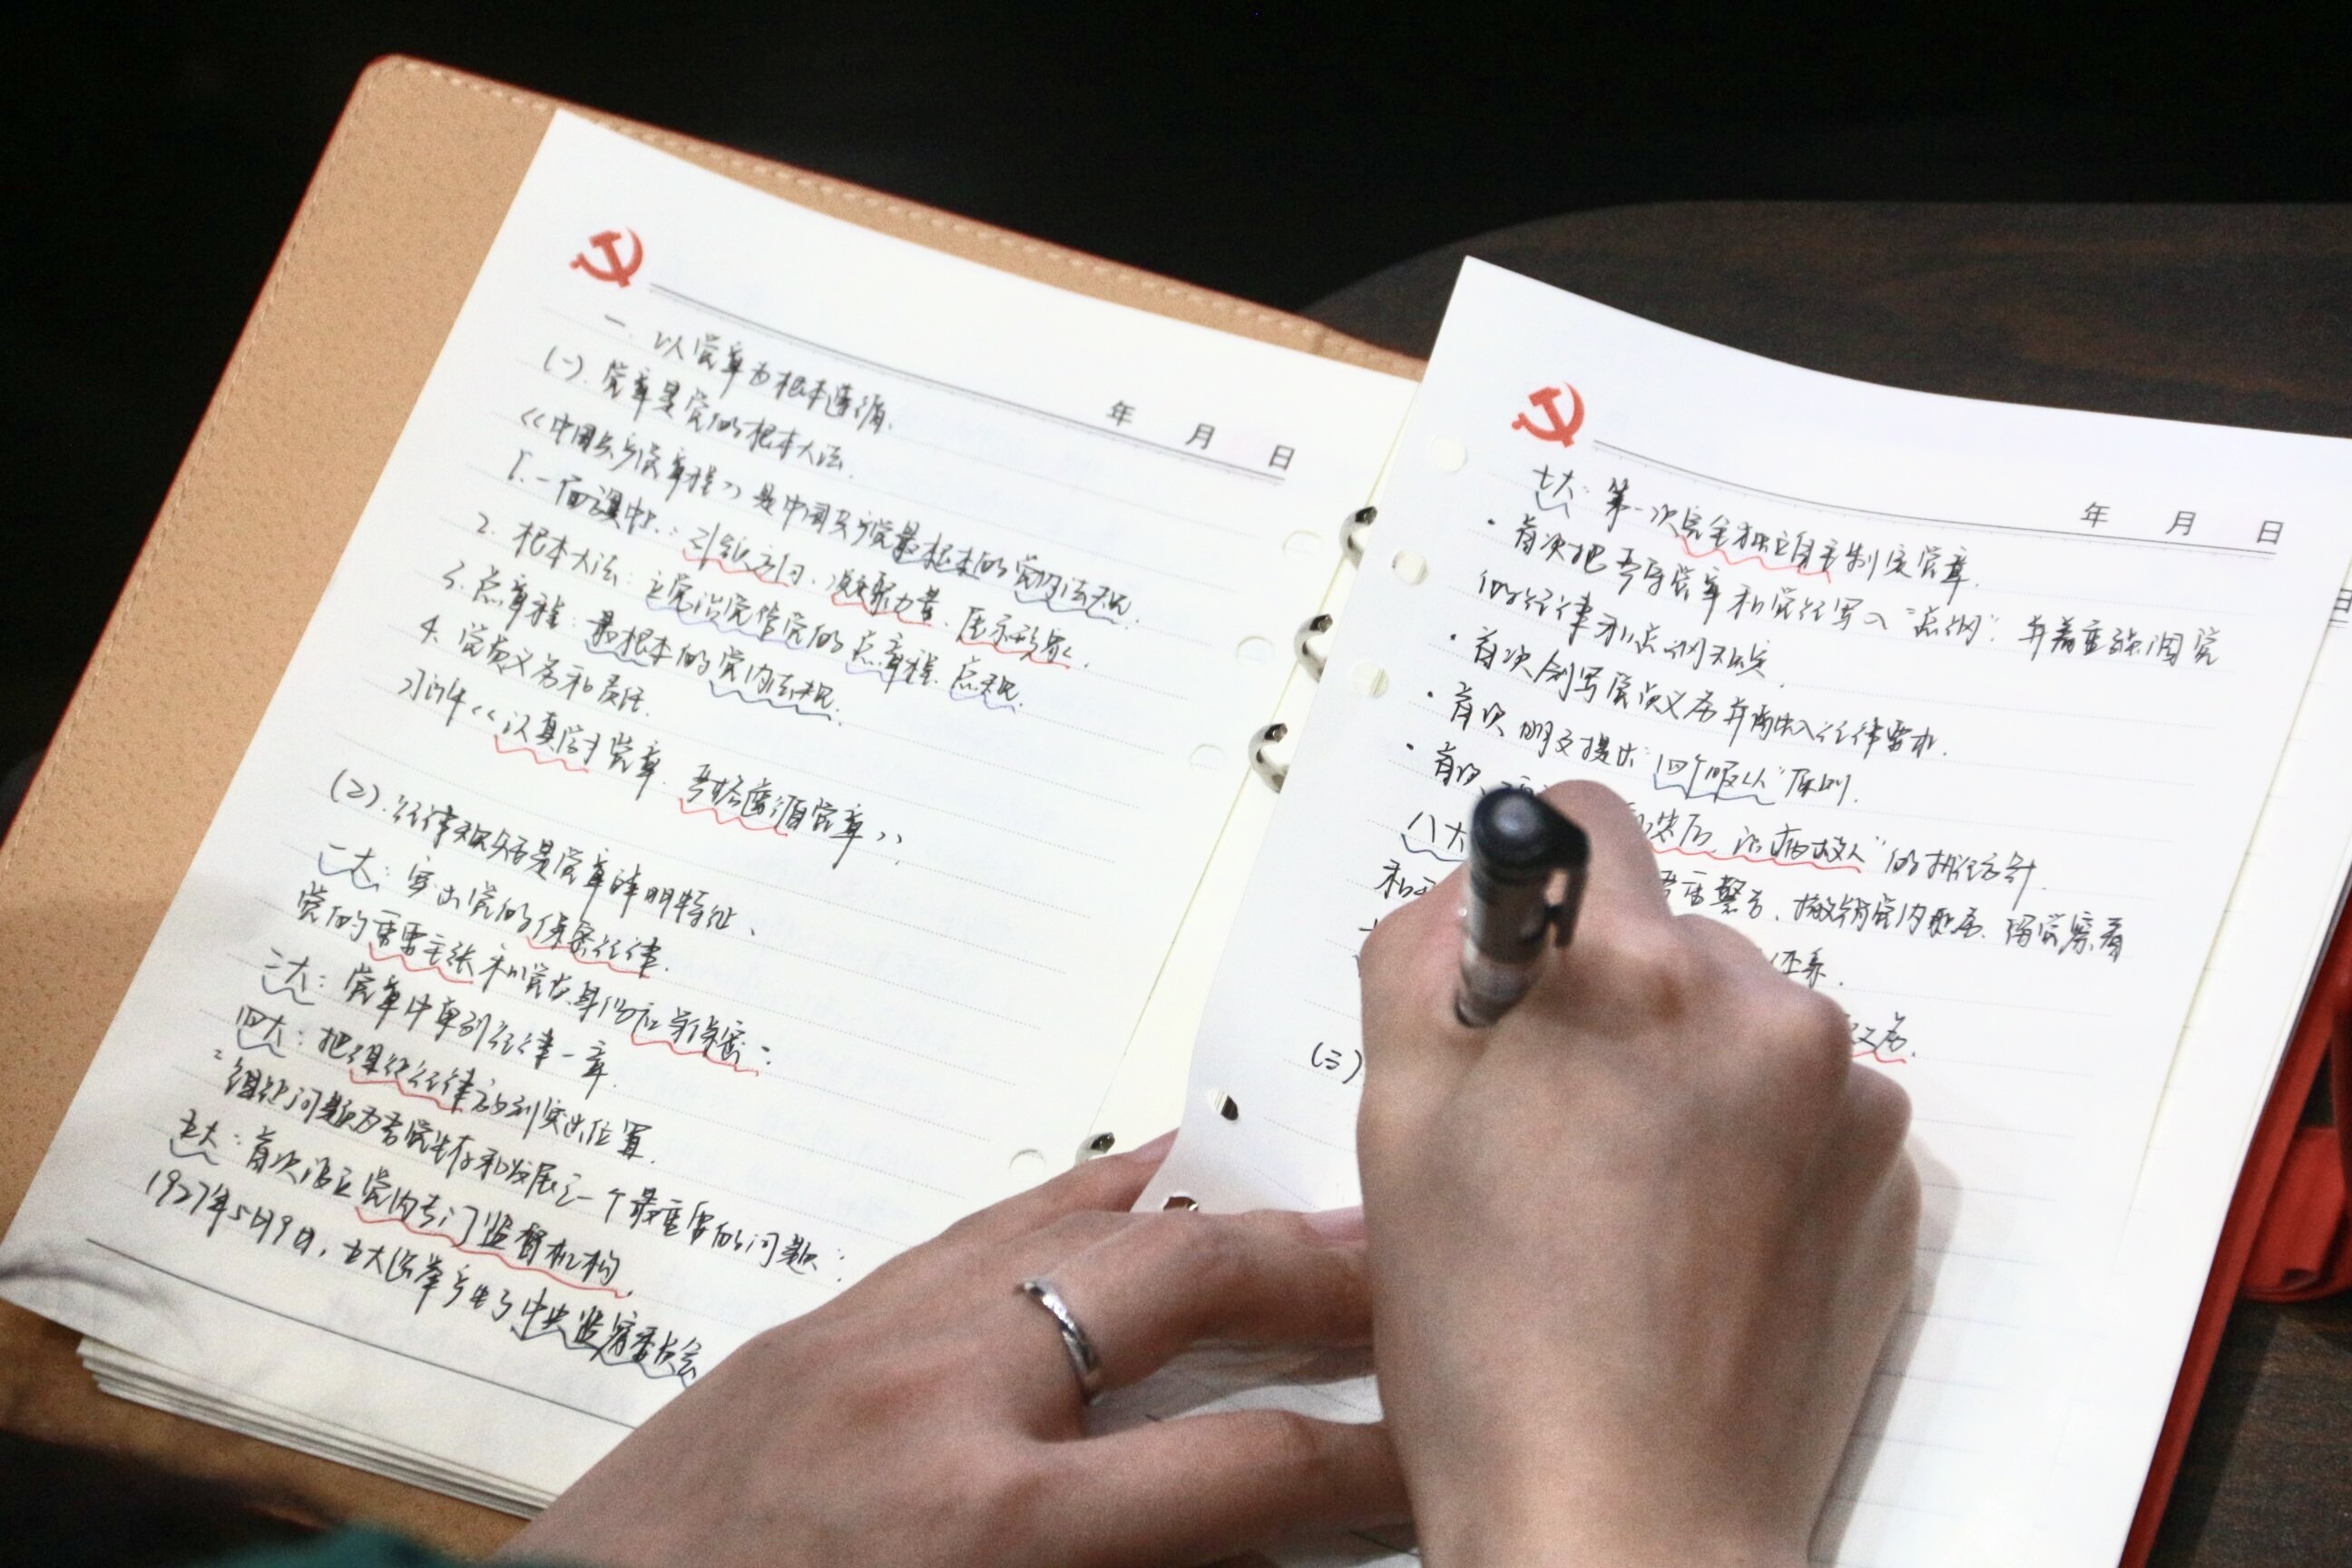 年 月 日
一、以党章为根本遵循.
(一).党章是党的根本大法.
《中国共产党章程》是中国共产党最根本的党内法规.
1.一面旗帜：引领方向、凝聚力量、展示形象.
2. 根本大法：立党治党管党的总章程.总规.
3.总章程：最根本的党内法规.
4.党员义务和责任.
习《认真学习党章.严格遵循党章》.
(二).纪律规矩是党章鲜明特征、
二大：突出党的保密纪律.
党的重要主张和党员身份应予保密
三大：党章中单列纪律一章.
四大：把组织纪律放到突出位置.
"组织问题为吾党生存和发展之一个最重要的问题
五大：首次设立党内专门监督机构.
1927年5月9日，五大选举产生了中央监察委员会
年 月 日
七大：第一次完全独立自主制定党章.
·首次把遵守党章和党纪写入"总纲".并着重强调党
的纪律和
·首次创写党员义务并内入纪律要求.
·首次明文提出"四个服从"原则.
·首次 治病救人"的执纪方针.
八大 严重警告、撤销党内职务、留党察看
和
体系.
义务.
(三)